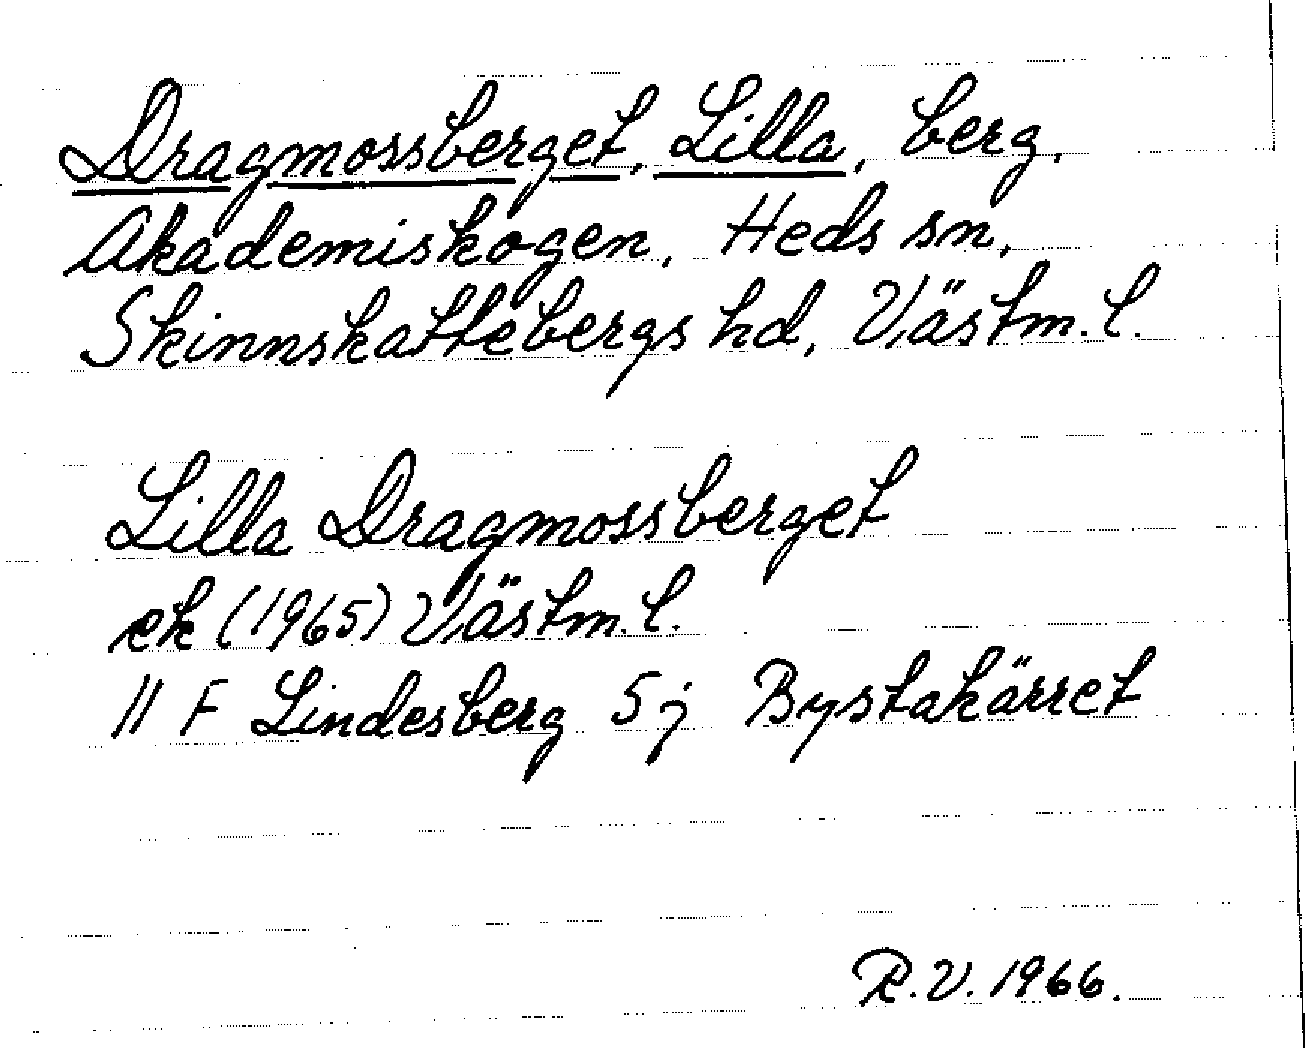 Dragmossberget, Lilla, berg,
Akademiskogen, Heds sn,
Skinnskattebergs hd, Västm. l.
Lilla Dragmossberget
ek (1965) Västm. l.
11 F Lindesberg 5j Bystakärret
R.V. 1966.